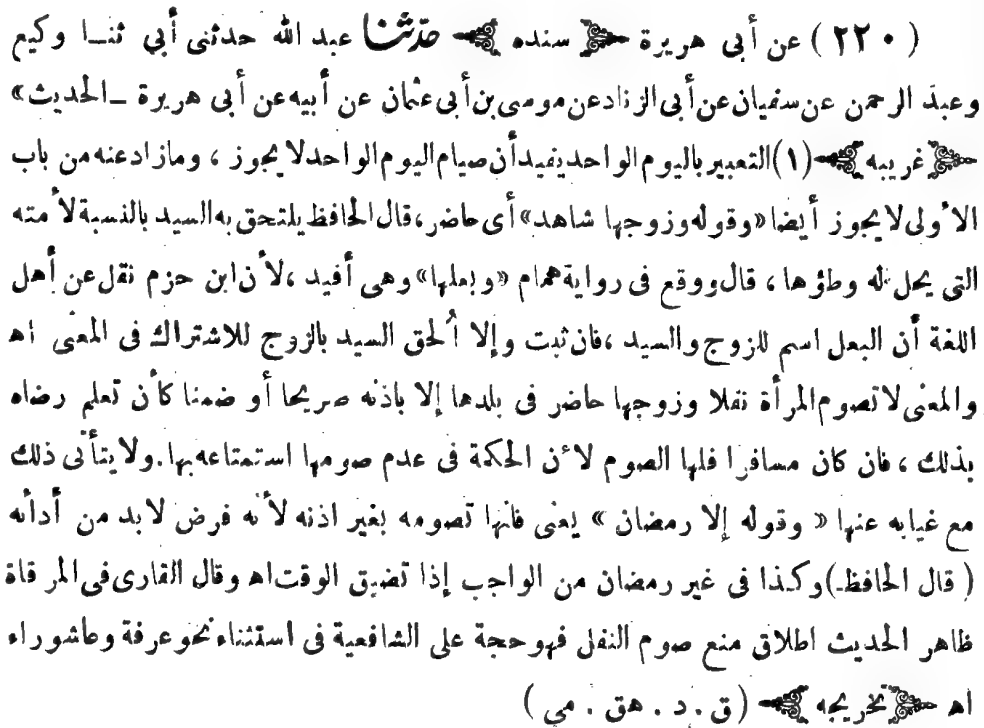 ( ٢٢٠ ) عن أبى هريرة ﴿ سنده ﴾ حدّثنا عبد الله حدثنى أبي ثنـا وكيع
وعبد الرحمن عن سفيان عن أبى الزناد عن موسى بن أبى عثمان عن أبيه عن أبى هريرة ــ الحديث»
﴿ غريبه ﴾ (١) التعبير باليوم الواحد يفيد أن صيام اليوم الواحد لا يجوز ، وما زاد عنه من باب
الأولى لا يجوز أيضا «وقوله وزوجها شاهد» أى حاضر، قال الحافظ يلتحق به السيد بالنسبة لأمته
التى يحل له وطؤها ، قال ووقع فى رواية همام «وبعلها» وهى أفيد ، لأن ابن حزم نقل عن أهل
اللغة أن البعل اسم للزوج والسيد ، فان ثبت وإلا ألحق السيد بالزوج للاشتراك فى المعنى اه
والمعنى لا تصوم المرأة نفلا وزوجها حاضر فى بلدها إلا باذنه صريحا أو ضمنا كأن تعلم رضاه
بذلك ، فان كان مسافرا فلها الصوم لأن الحكمة فى عدم صومها استمتاعه بها . ولا يتأتى ذلك
مع غيابه عنها « وقوله إلا رمضان » يعنى فانها تصومه بغير اذنه لأنه فرض لابد من أدائه
( قال الحافظ ) وكذا فى غير رمضان من الواجب إذا تضيق الوقت اه وقال القارى فى المرقاة
ظاهر الحديث اطلاق منع صوم النفل فهو حجة على الشافعية فى استثناء نحو عرفة وعاشوراء
اه ﴿ تخريجه ﴾ ( ق . د . هق . مى )